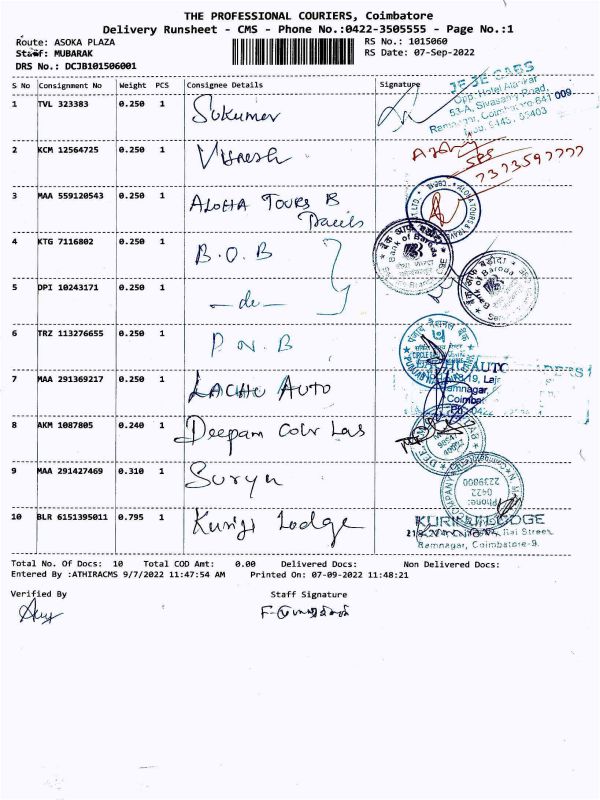 THE PROFESSIONAL COURIERS, Coimbatore
Delivery Runsheet - CMS - Phone No.:0422-3505555 - Page No.:1
Route: ASOKA PLAZA
RS No.: 1015060
Staff: MUBARAK
RS Date: 07-Sep-2022
DRS No.: DCJB101506001
S No Consignment No Weight PCS Consignee Details Signature
1 TVL 323383 0.250 1 Sukumar
JE JE CABS
Opp. Hotel Alankar
53-A, Sivasamy Road,
Ramnagar, Coimbatore-641 009
2 KCM 12564725 0.250 1
3 MAA 559120543 0.250 1 ALOHA TOURS &
Travels
4 KTG 7116802 0.250 1 B.O.B
बैंक ऑफ़ बड़ौदा
Bank of Baroda
5 DPI 10243171 0.250 1 — do —
बैंक ऑफ़ बड़ौदा
Bank of Baroda
6 TRZ 113276655 0.250 1 P.N.B
पंजाब नैशनल बैंक
7 MAA 291369217 0.250 1 LACHU AUTO
AUTO
Ramnagar,
8 AKM 1087805 0.240 1 Deepam
9 MAA 291427469 0.310 1 Surya
Phone:
0422
2239960
10 BLR 6151395011 0.795 1 Kurinji Lodge
KURINJI LODGE
Ramnagar, Coimbatore-9.
Total No. Of Docs: 10 Total COD Amt: 0.00 Delivered Docs: Non Delivered Docs:
Entered By :ATHIRACMS 9/7/2022 11:47:54 AM Printed On: 07-09-2022 11:48:21
Verified By Staff Signature